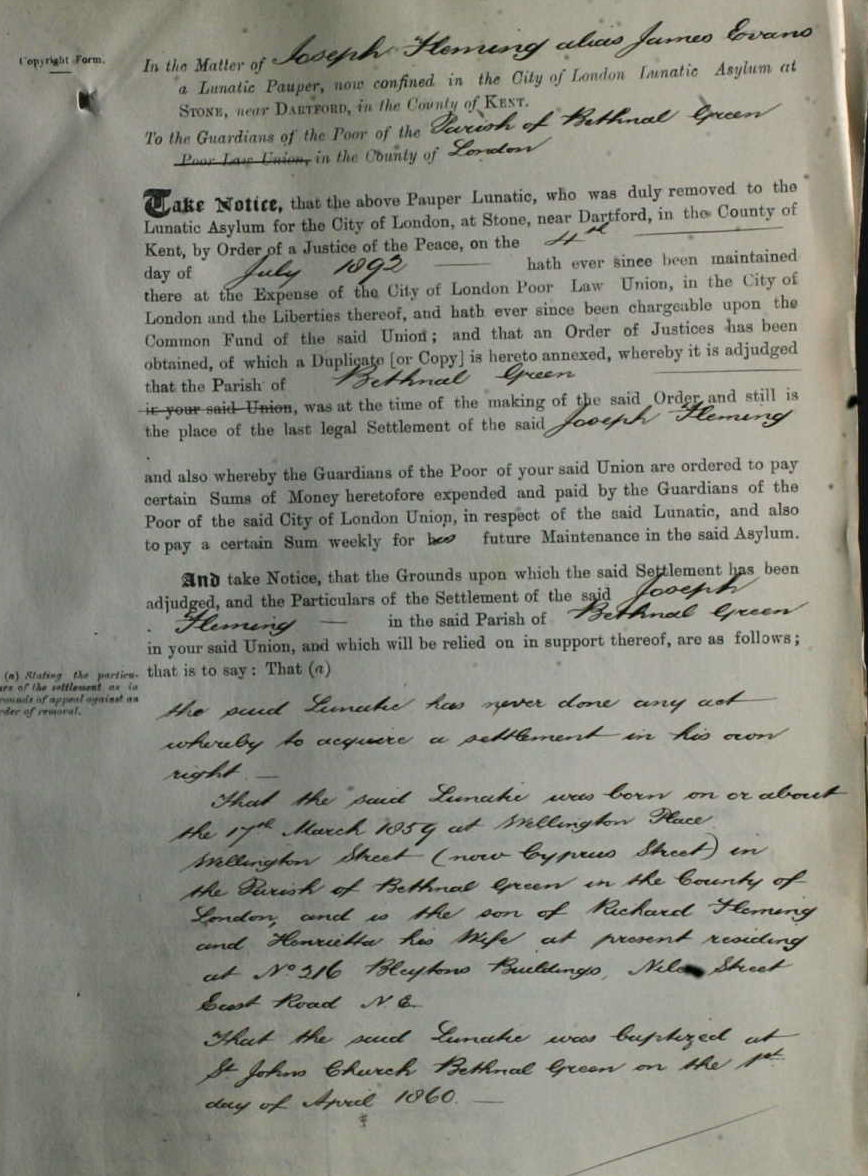 Copyright Form.
In the Matter of Joseph Fleming alias James Evans
a Lunatic Pauper, now confined in the City of London Lunatic Asylum at
STONE, near DARTFORD, in the County of KENT.
To the Guardians of the Poor of the Parish of Bethnal Green
Poor Law Union, in the County of London
Take Notice, that the above Pauper Lunatic, who was duly removed to the
Lunatic Asylum for the City of London, at Stone, near Dartford, in the County of
Kent, by Order of a Justice of the Peace, on the 4th
day of July 1892 hath ever since been maintained
there at the Expense of the City of London Poor Law Union, in the City of
London and the Liberties thereof, and hath ever since been chargeable upon the
Common Fund of the said Union; and that an Order of Justices has been
obtained, of which a Duplicate [or Copy] is hereto annexed, whereby it is adjudged
that the Parish of Bethnal Green
in your said Union, was at the time of the making of the said Order and still is
the place of the last legal Settlement of the said Joseph Fleming
and also whereby the Guardians of the Poor of your said Union are ordered to pay
certain Sums of Money heretofore expended and paid by the Guardians of the
Poor of the said City of London Union, in respect of the said Lunatic, and also
to pay a certain Sum weekly for his future Maintenance in the said Asylum.
And take Notice, that the Grounds upon which the said Settlement has been
adjudged, and the Particulars of the Settlement of the said Joseph
Fleming — in the said Parish of Bethnal Green
in your said Union, and which will be relied on in support thereof, are as follows;
that is to say: That (a)
(a) Stating the particu-
ars of the settlement as in
rounds of appeal against an
rder of removal.
the said Lunatic has never done any act
whereby to acquire a settlement in his own
right. —
That the said Lunatic was born on or about
the 17th March 1859 at Wellington Place
Wellington Street (now Cyprus Street) in
the Parish of Bethnal Green in the County of
London, and is the son of Richard Fleming
and Henrietta his Wife at present residing
at No 216 Buildings, Street
East Road N.E.
That the said Lunatic was baptized at
St Johns Church Bethnal Green on the 1st
day of April 1860. —